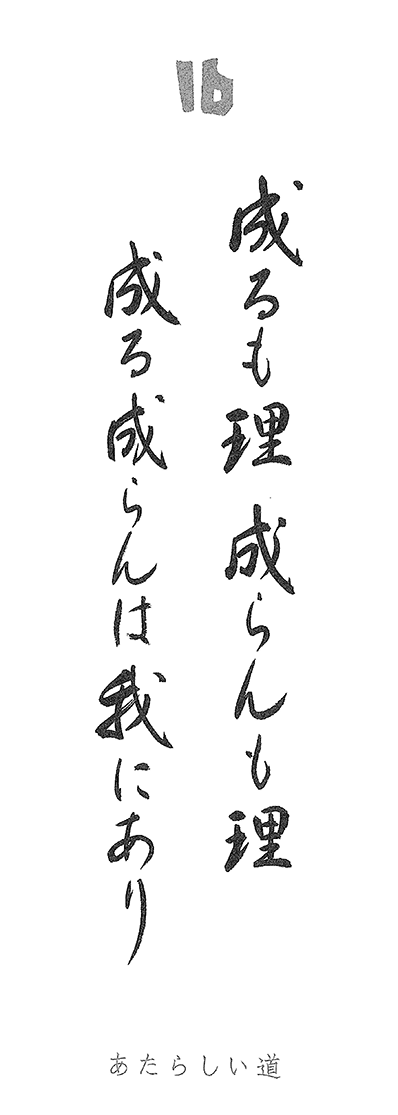 16
成るも理 成らんも理
成る成らんは我にあり
あたらしい道